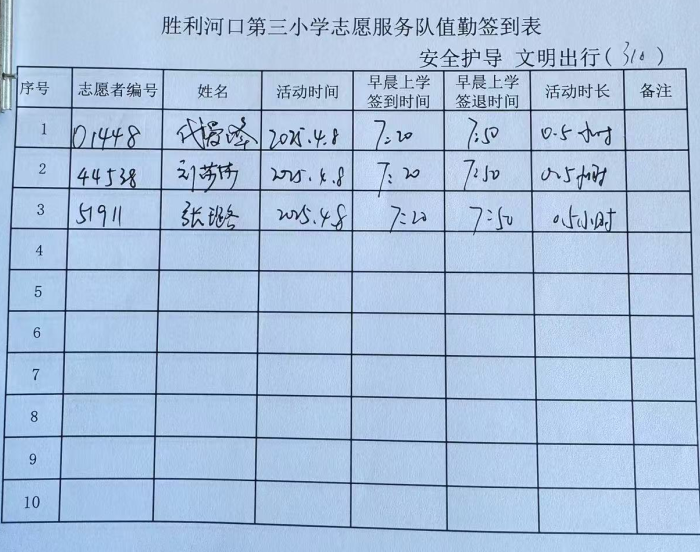 胜利河口第三小学志愿服务队值勤签到表
安全护导 文明出行(310)
序号 志愿者编号 姓名 活动时间 早晨上学签到时间 早晨上学签退时间 活动时长 备注
1 01448 2025.4.8 7:20 7:50 0.5小时
2 44538 刘莎莎 2025.4.8 7:20 7:50 0.5小时
3 51911 张璐 2025.4.8 7:20 7:50 0.5小时
4
5
6
7
8
9
10